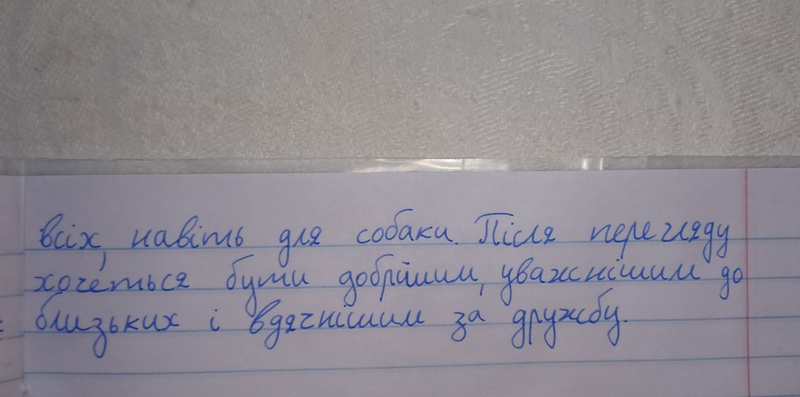 всіх, навіть для собаки. Після перегляду
хочеться бути добрішим, уважнішим до
близьких і вдячнішим за дружбу.